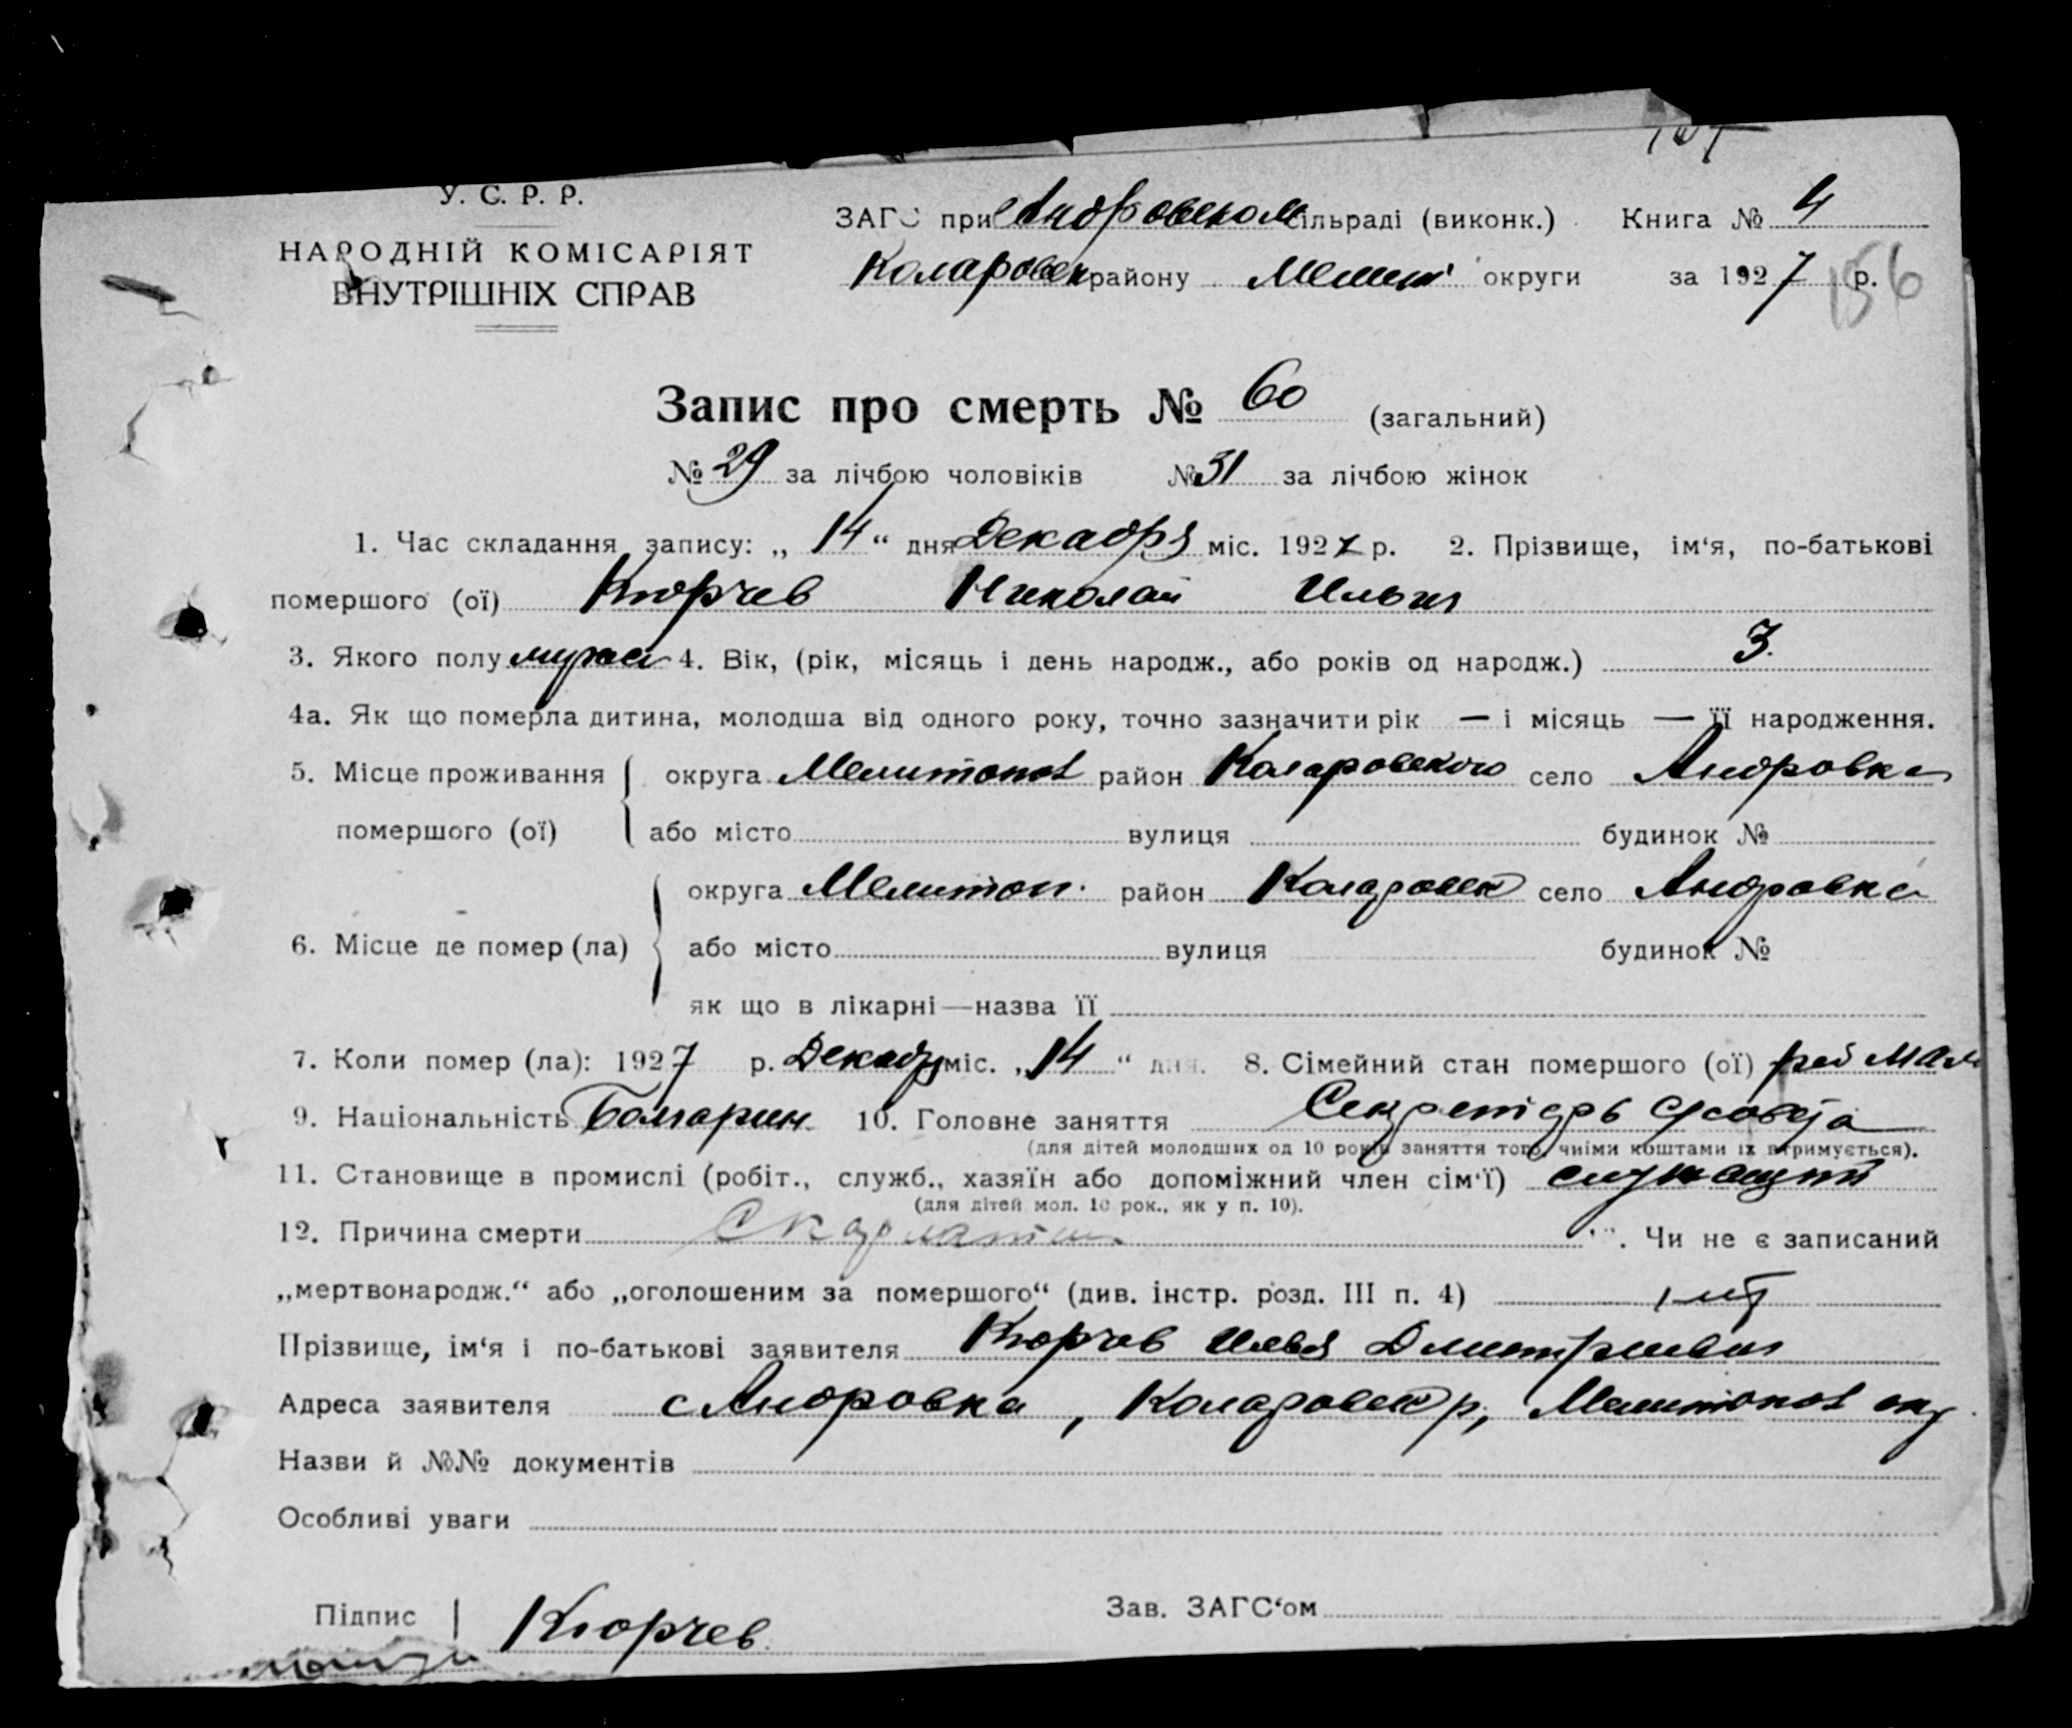 У. С. Р. Р.
НАРОДНІЙ КОМІСАРІЯТ
ВНУТРІШНІХ СПРАВ
ЗАГС при Андровском сільраді (виконк.) Книга № 4
Коларовск району Мелит округи за 1927 р. 156
Запис про смерть № 60 (загальний)
№ 29 за лічбою чоловіків № 31 за лічбою жінок
1. Час складання запису: „ 14 “ дня Декабря міс. 1927 р. 2. Прізвище, ім‘я, по-батькові
помершого (ої) Кюрчев Николай Ильич
3. Якого полу мужск 4. Вік, (рік, місяць і день народж., або років од народж.) 3.
4а. Як що померла дитина, молодша від одного року, точно зазначити рік — і місяць — її народження.
5. Місце проживання помершого (ої) округа Мелитопол район Коларовского село Андровка
або місто вулиця будинок №
6. Місце де помер (ла) округа Мелитоп. район Коларовск село Андровка
або місто вулиця будинок №
як що в лікарні—назва її
7. Коли помер (ла): 1927 р. Декабр міс. „ 14 “ дня. 8. Сімейний стан помершого (ої)
9. Національність Болгарин. 10. Головне заняття Секретарь с/совета
(для дітей молодших од 10 років заняття того, чиїми коштами їх втримується).
11. Становище в промислі (робіт., служб., хазяїн або допоміжний член сім‘ї) служащий
(для дітей мол. 10 рок., як у п. 10).
12. Причина смерти Скарлатина. Чи не є записаний
„мертвонародж.“ або „оголошеним за помершого“ (див. інстр. розд. III п. 4) нет
Прізвище, ім‘я і по-батькові заявителя Кюрчев Илья Дмитриевич
Адреса заявителя с Андровка, Коларовск р, Мелитопол окр
Назви й №№ документів
Особливі уваги
Підпис Кюрчев
Зав. ЗАГС‘ом